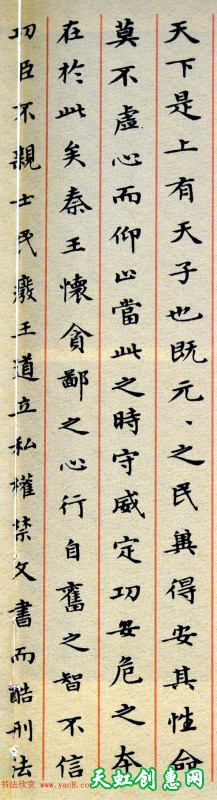 天下是上有天子也既元、之民兾得安其性命
莫不虛心而仰上當此之時守威定功安危之本
在於此矣秦王懷貪鄙之心行自奮之智不信
功臣不親士民廢王道立私權禁文書而酷刑法
书法欣赏 www.yac8.com
天虹创惠网